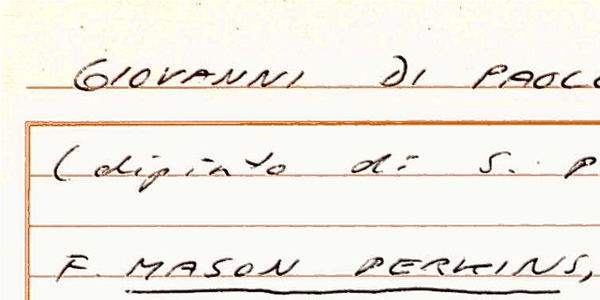 GIOVANNI DI PAOLO
(dipinto di S. P
F. MASON PERKINS,